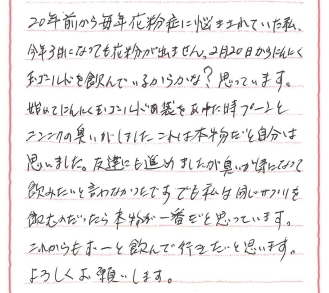 20年前から毎年花粉症に悩まされていた私、
今年3月になっても花粉が出ません。2月20日からにんにく
玉ゴールドを飲んでいるからかな?思っています。
始めてにんにく玉ゴールドの袋をあけた時プーンと
ニンニクの臭いがしましたこれは本物だと自分は
思いました。友達にも進めましたが臭いが気になって
飲みたいと言わなかったです でも私は同じサプリを
飲むのだったら本物が一番だと思っています。
これからもずーと飲んで行きたいと思います。
よろしくお願いします。